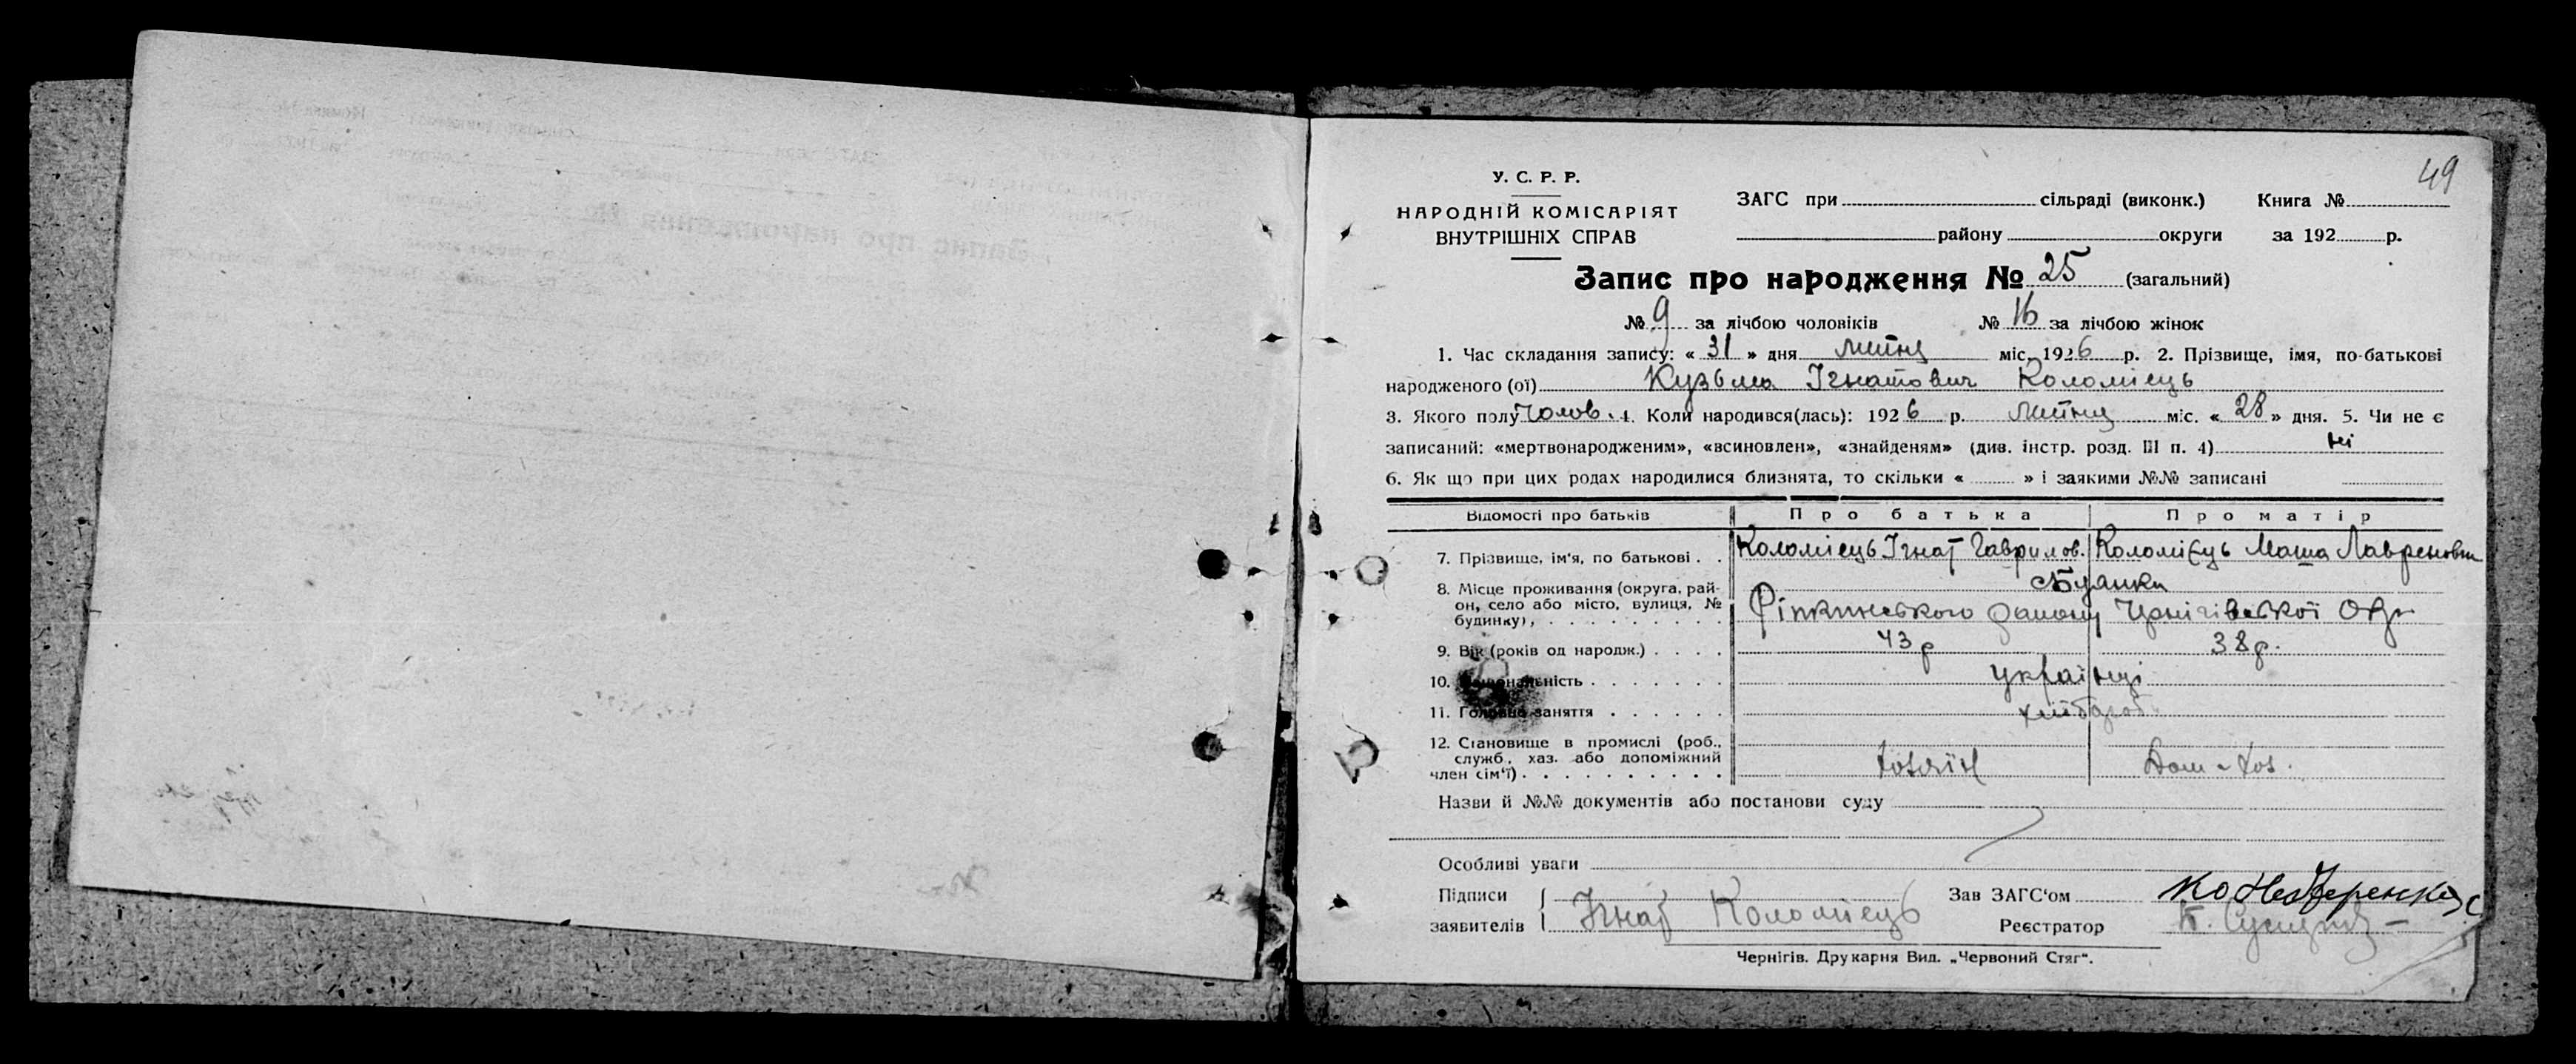 49
У. С. Р. Р.
НАРОДНІЙ КОМІСАРІЯТ
ВНУТРІШНІХ СПРАВ
ЗАГС при сільраді (виконк.) Книга №
району округи за 192 р.
Запис про народження № 25 (загальний)
№ 9 за лічбою чоловіків № 16 за лічбою жінок
1. Час складання запису: « 31 » дня липня міс. 1926 р. 2. Прізвище, імя, по-батькові
народженого (ої) Кузьма Ігнатович Коломієць
3. Якого полу Чолов. 4. Коли народився(лась): 1926 р. липня міс. « 28 » дня. 5. Чи не є
записаний: «мертвонародженим», «всиновлен», «знайденям» (див. інстр. розд. III п. 4) ні
6. Як що при цих родах народилися близнята, то скільки « » і заякими №№ записані
Відомості про батьків Про батька Про матір
7. Прізвище, ім'я, по батькові . . Коломієць Ігнат Гаврилов. Коломієць Маша
8. Місце проживання (округа, рай-
он, село або місто, вулиця, №
будинку), . . . . . . . . . району Чернігівської
9. Вік (років од народж.) . . . . 43 р 38 р.
10. Національність . . . . . . . українці
11. Головне заняття . . . . . . хлібороб
12. Становище в промислі (роб.,
служб, хаз. або допоміжний
член сім'ї) . . . . . . . . . . хозяїн Дом-хоз.
Назви й №№ документів або постанови суду
Особливі уваги
Підписи Зав ЗАГС'ом
заявителів Ігнат Коломієць Реєстратор
Чернігів. Друкарня Вид. „Червоний Стяг".